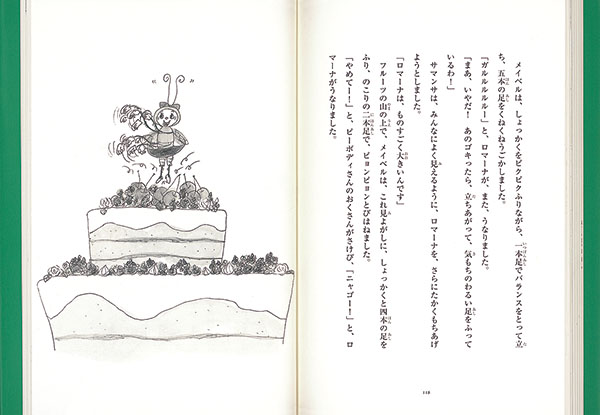 メイベルは、しょっかくをピクピクふりながら、一本足でバランスをとって立
ち、五本の足をくねくねうごかしました。
「ガルルルルルー」と、ロマーナが、また、うなりました。
「まあ、いやだ！　あのゴキったら、立ちあがって、気もちのわるい足をふって
いるわ！」
サマンサは、みんなによく見えるように、ロマーナを、さらにたかくもちあげ
ようとしました。
「ロマーナは、ものすごく大きいんです」
フルーツの山の上で、メイベルは、これ見よがしに、しょっかくと四本の足を
ふり、のこりの二本足で、ピョンピョンとびはねました。
「やめてー！」と、ピーボディさんのおくさんがさけび、「ニャゴー！」と、ロ
マーナがうなりました。